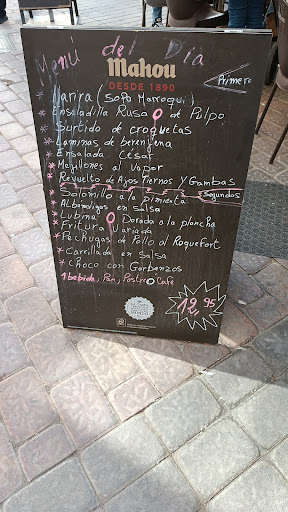 Menú del Dia
Mahou
DESDE 1890
Primero
* Harira (sopa Marroquí)
* Ensaladilla Rusa o de Pulpo
* Surtido de croquetas
* Laminas de berenjena
* Ensalada César
* Mejillones al vapor
* Revuelto de Ajos tiernos y Gambas
Segundos
* Solomillo a la pimienta
* Albóndigas en salsa
* Lubina o Dorada a la plancha
* Fritura Variada
* Pechugas de Pollo al Roquefort
* Carrillada en salsa
* Choco con Garbanzos
1 bebida, Pan, Postre o Café
12,95